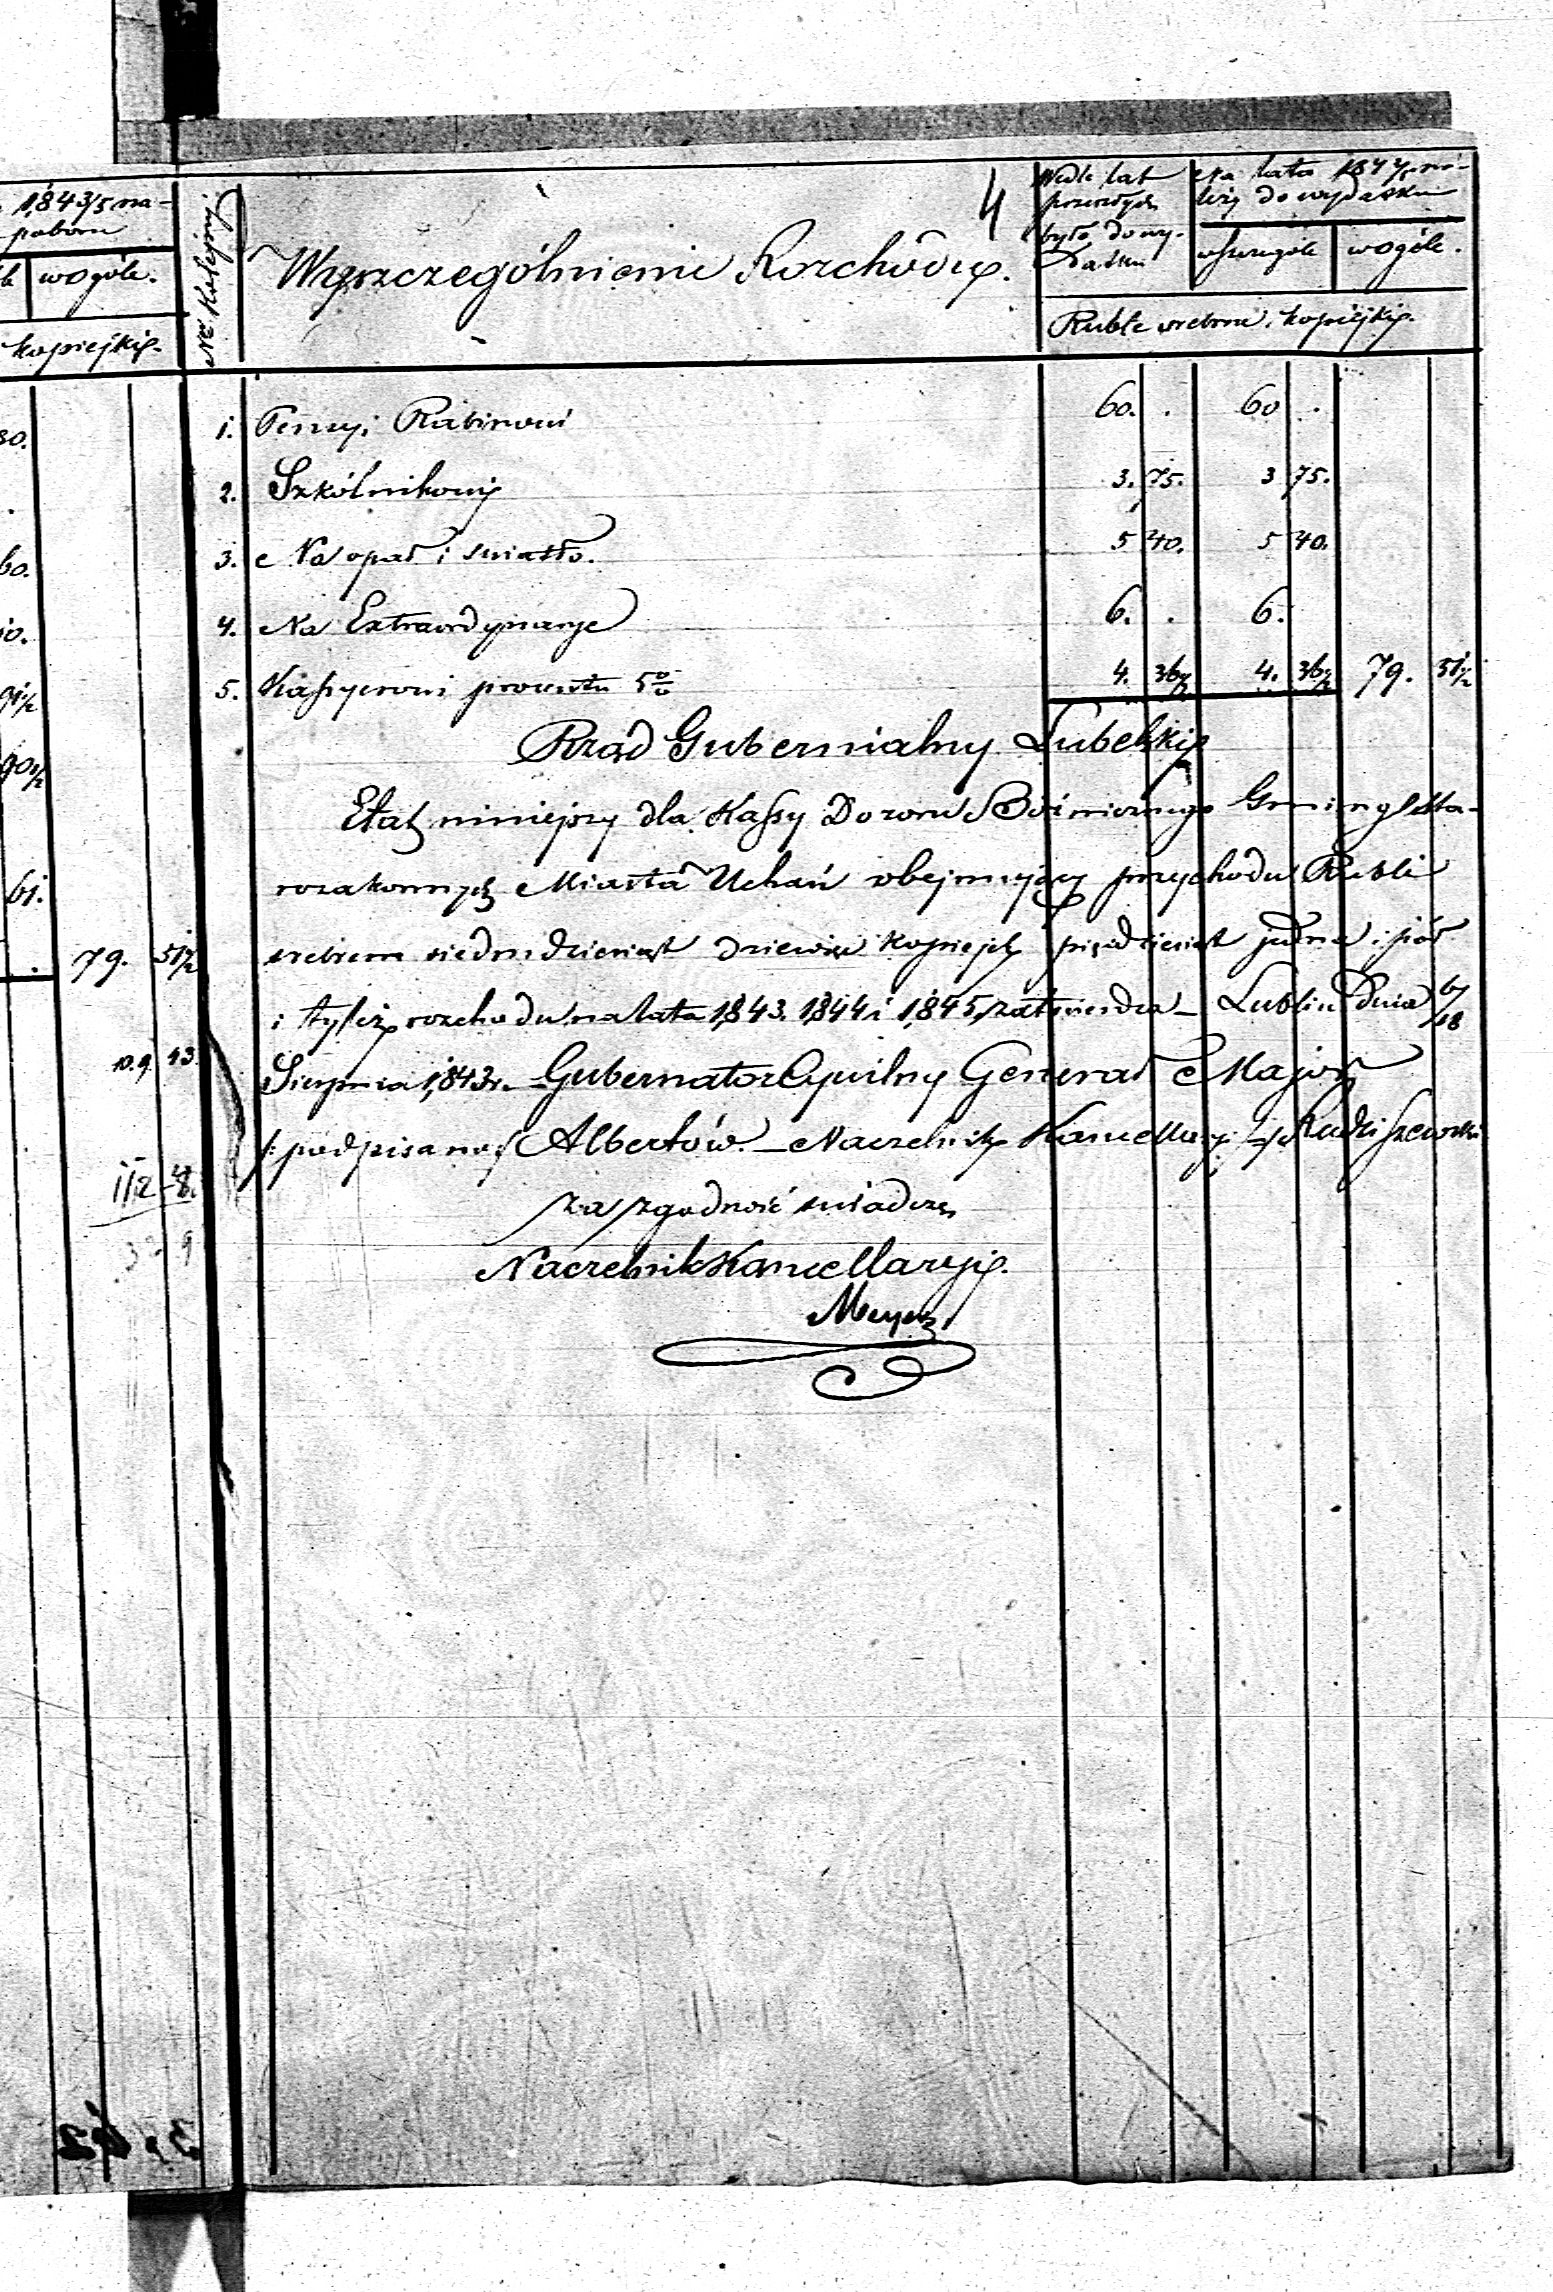 1843/5 na-
poboru
wogóle.
kopiejki.
79. 51½
10.9. 13.
Nr Kolejny
Wyszczególnienie Rozchodu.
4
Wedle lat
przeszłych
było do wy-
datku
Na lata 184 3/5 na-
leży do wydatku
wszczególe
wogóle.
Ruble srebrne, kopiejki.
1. Pensyi Rabinowi 60. . 60 .
2. Szkólnikowi 3. 75. 3 75.
3. Na opał i swiatło. 5 40. 5 40.
4. Na Extraordynarye 6. . 6.
5. Kassyerowi procentu 5% 4. 36½ 4. 36½ 79. 51½
Rząd Gubernialny Lubelski
Etat niniejszy dla Kassy Dozoru Bożnicznego Gminy Sta-
rozakonnych Miasta Uchań obejmujący przychodu Rubli
srebrem siedmdziesiąt dziewięć kopiejek pięćdziesiąt jedna i pół
i tyleż rozchodu na lata 1843. 1844 i 1845, zatwierdza – Lublin dnia 6/18
Sierpnia 1843 r. – Gubernator Cywilny Generał Major
/: podpisano :/ Albertów. – Naczelnik Kancellaryi
za zgodność swiadczę
Naczelnik Kancellaryi.
Meyer